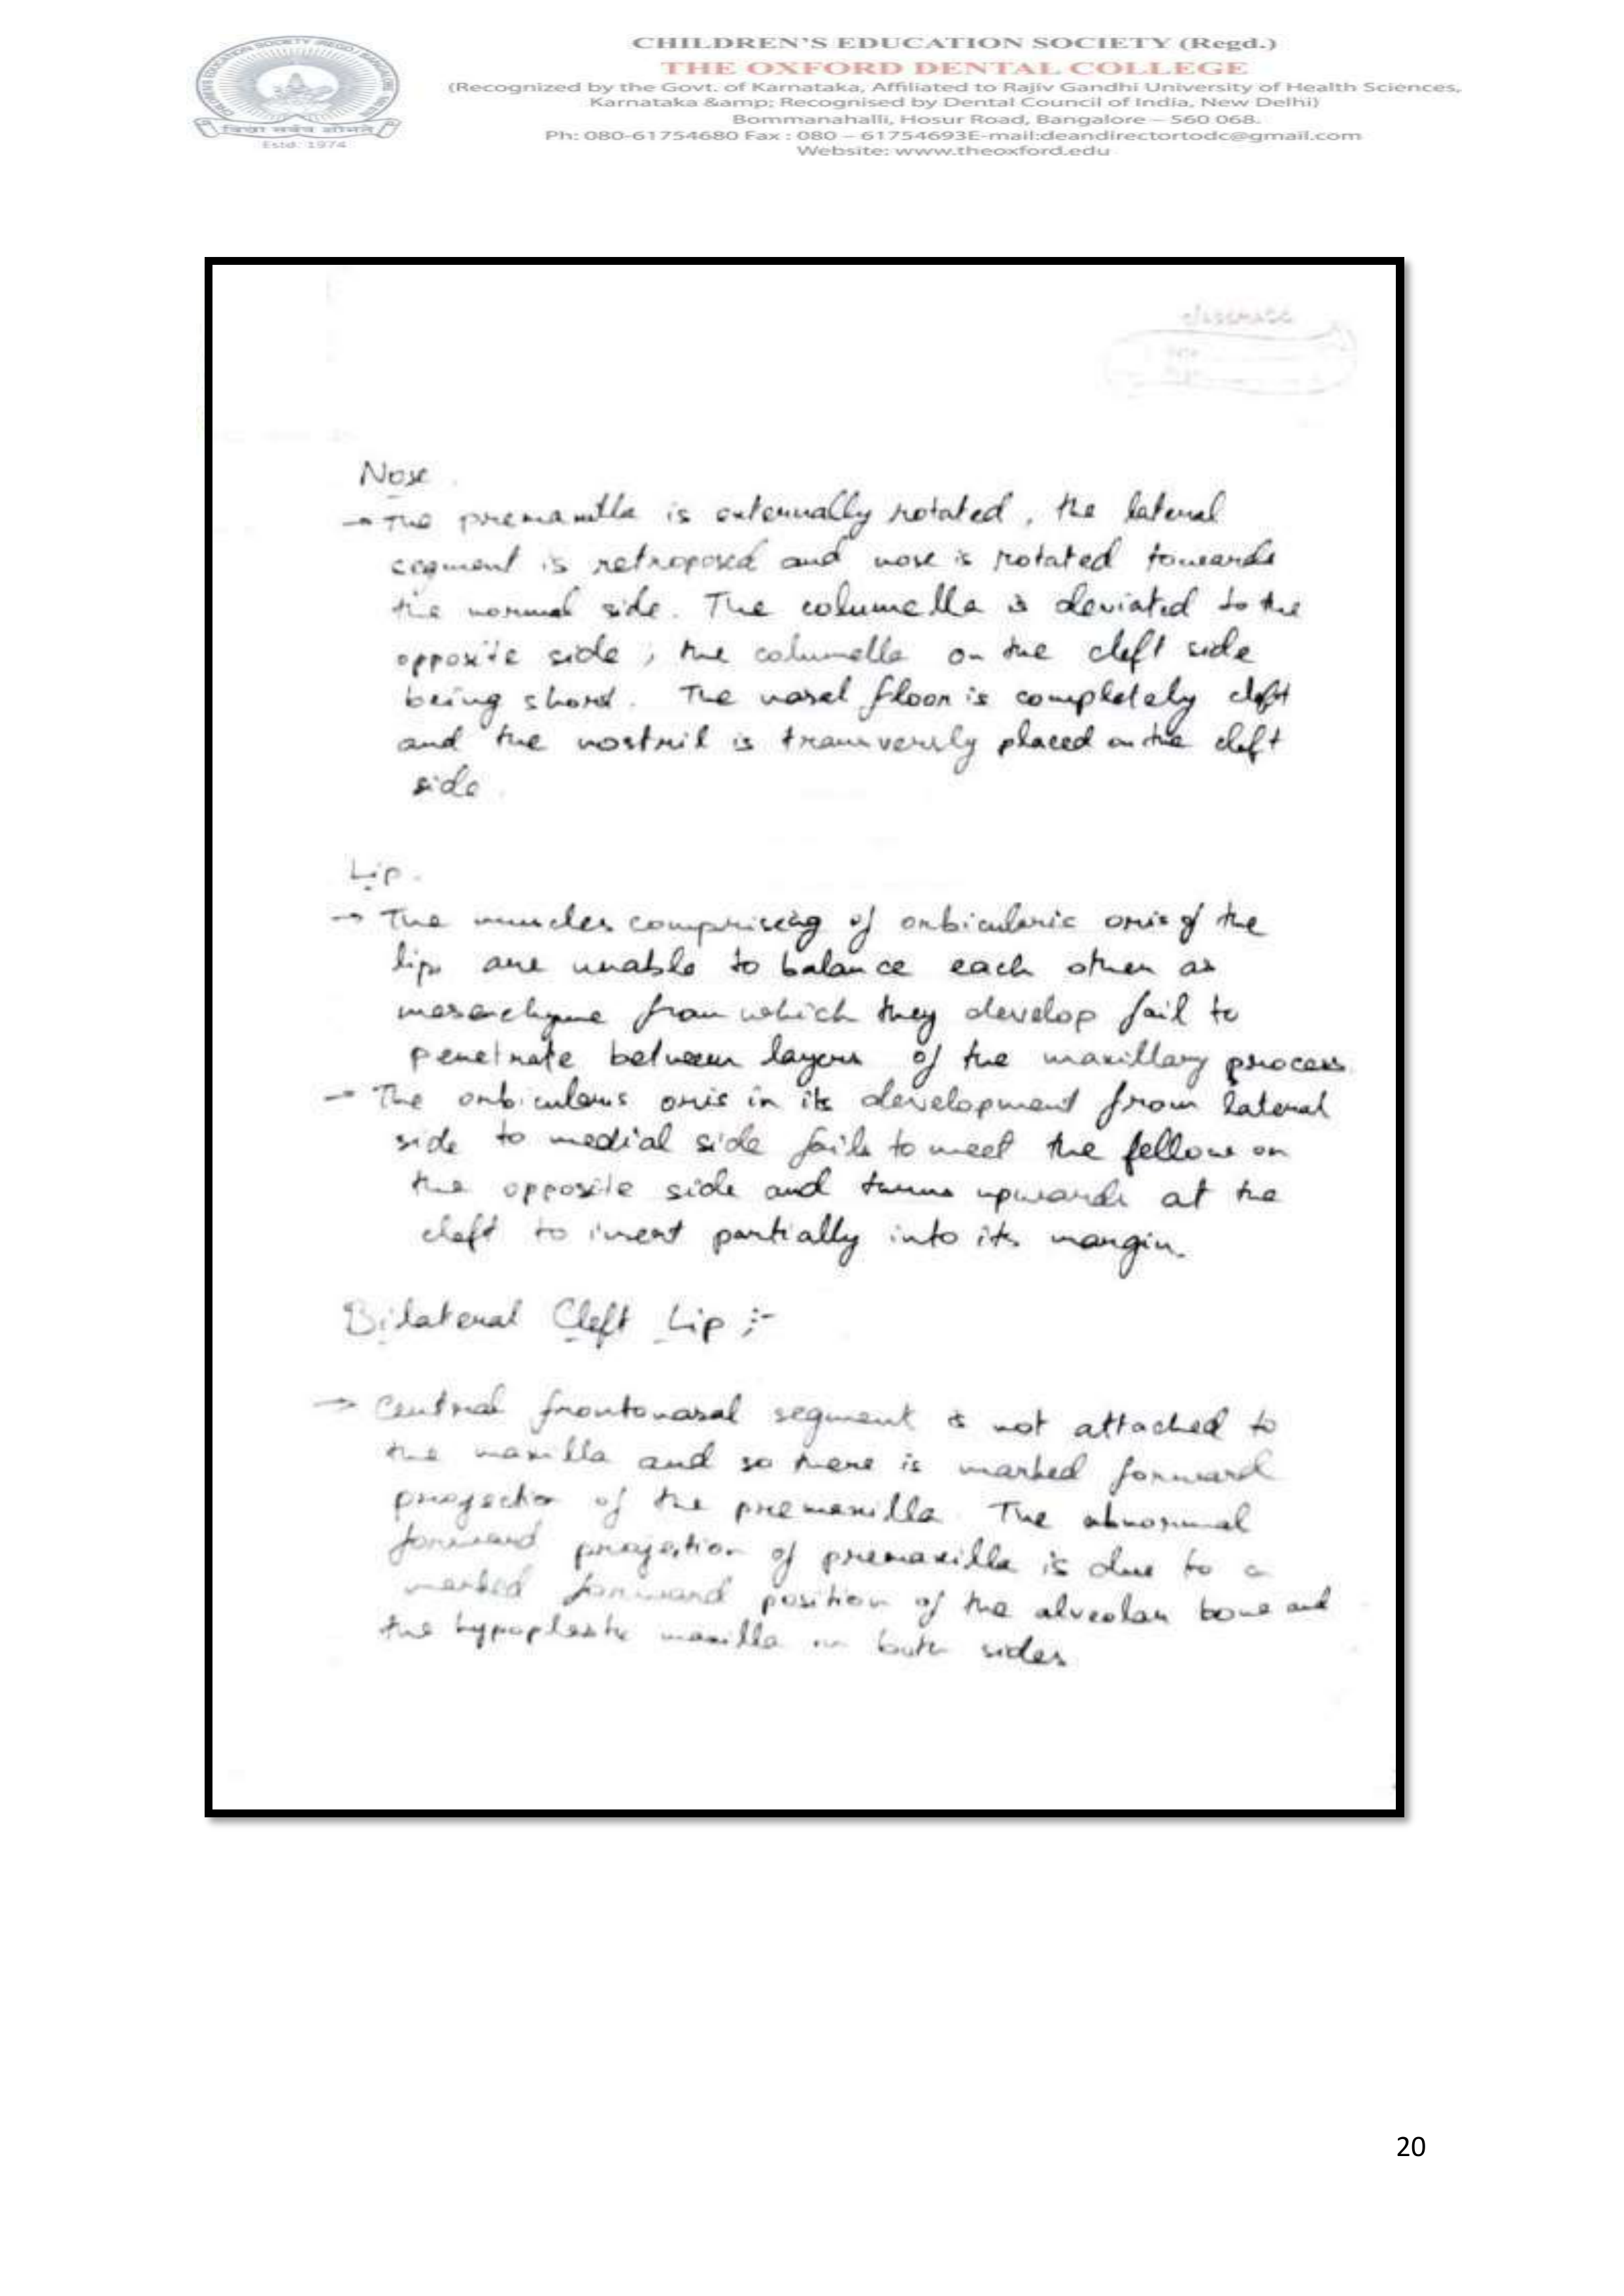 CHILDREN'S EDUCATION SOCIETY (Regd.)
THE OXFORD DENTAL COLLEGE
(Recognized by the Govt. of Karnataka, Affiliated to Rajiv Gandhi University of Health Sciences,
Karnataka &amp; Recognised by Dental Council of India, New Delhi)
Bommanahalli, Hosur Road, Bangalore – 560 068.
Ph: 080-61754680 Fax : 080 – 61754693E-mail:deandirectortodc@gmail.com
Website: www.theoxford.edu
Estd. 1974
classmate
Nose.
→ The premaxilla is externally rotated, the lateral
segment is retroposed and nose is rotated towards
the normal side. The columella is deviated to the
opposite side, the columella on the cleft side
being short. The nasal floor is completely cleft
and the nostril is transversly placed on the cleft
side.
Lip.
→ The muscles compriseing of orbicularis oris of the
lips are unable to balance each other as
mesenchyme from which they develop fail to
penetrate between layers of the maxillary process
→ The orbicularis oris in its development from lateral
side to medial side fails to meet the fellow on
the opposite side and turns upwards at the
cleft to insert partially into its margin.
Bilateral Cleft Lip ;-
→ Central frontonasal segment is not attached to
the maxilla and so there is marked forward
projection of the premaxilla. The abnormal
forward projection of premaxilla is due to a
marked forward position of the alveolar bone and
the hypoplastic maxilla on both sides
20